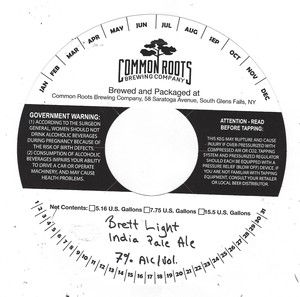 JAN FEB MAR APR MAY JUN JUL AUG SEP OCT NOV DEC
COMMON ROOTS
BREWING COMPANY
Brewed and Packaged at
Common Roots Brewing Company, 58 Saratoga Avenue, South Glens Falls, NY
GOVERNMENT WARNING:
(1) ACCORDING TO THE SURGEON
GENERAL, WOMEN SHOULD NOT
DRINK ALCOHOLIC BEVERAGES
DURING PREGNANCY BECAUSE OF
THE RISK OF BIRTH DEFECTS.
(2) CONSUMPTION OF ALCOHOLIC
BEVERAGES IMPAIRS YOUR ABILITY
TO DRIVE A CAR OR OPERATE
MACHINERY, AND MAY CAUSE
HEALTH PROBLEMS.
ATTENTION - READ
BEFORE TAPPING:
THIS KEG MAY RUPTURE AND CAUSE
INJURY IF OVER-PRESSURIZED WITH
COMPRESSED AIR OR CO2. TAPPING
SYSTEM AND PRESSURIZED REGULATOR
SHOULD EACH BE EQUIPPED WITH A
PRESSURE RELIEF (BLOW OFF) DEVICE. IF
YOU ARE NOT FAMILIAR WITH TAPPING
EQUIPMENT, CONSULT YOUR RETAILER
OR LOCAL BEER DISTRIBUTOR.
Net Contents: 5.16 U.S. Gallons 7.75 U.S. Gallons 15.5 U.S. Gallons
Brett Light
India Pale Ale
7% Alc/Vol.
1 2 3 4 5 6 7 8 9 10 11 12 13 14 15 16 17 18 19 20 21 22 23 24 25 26 27 28 29 30 31